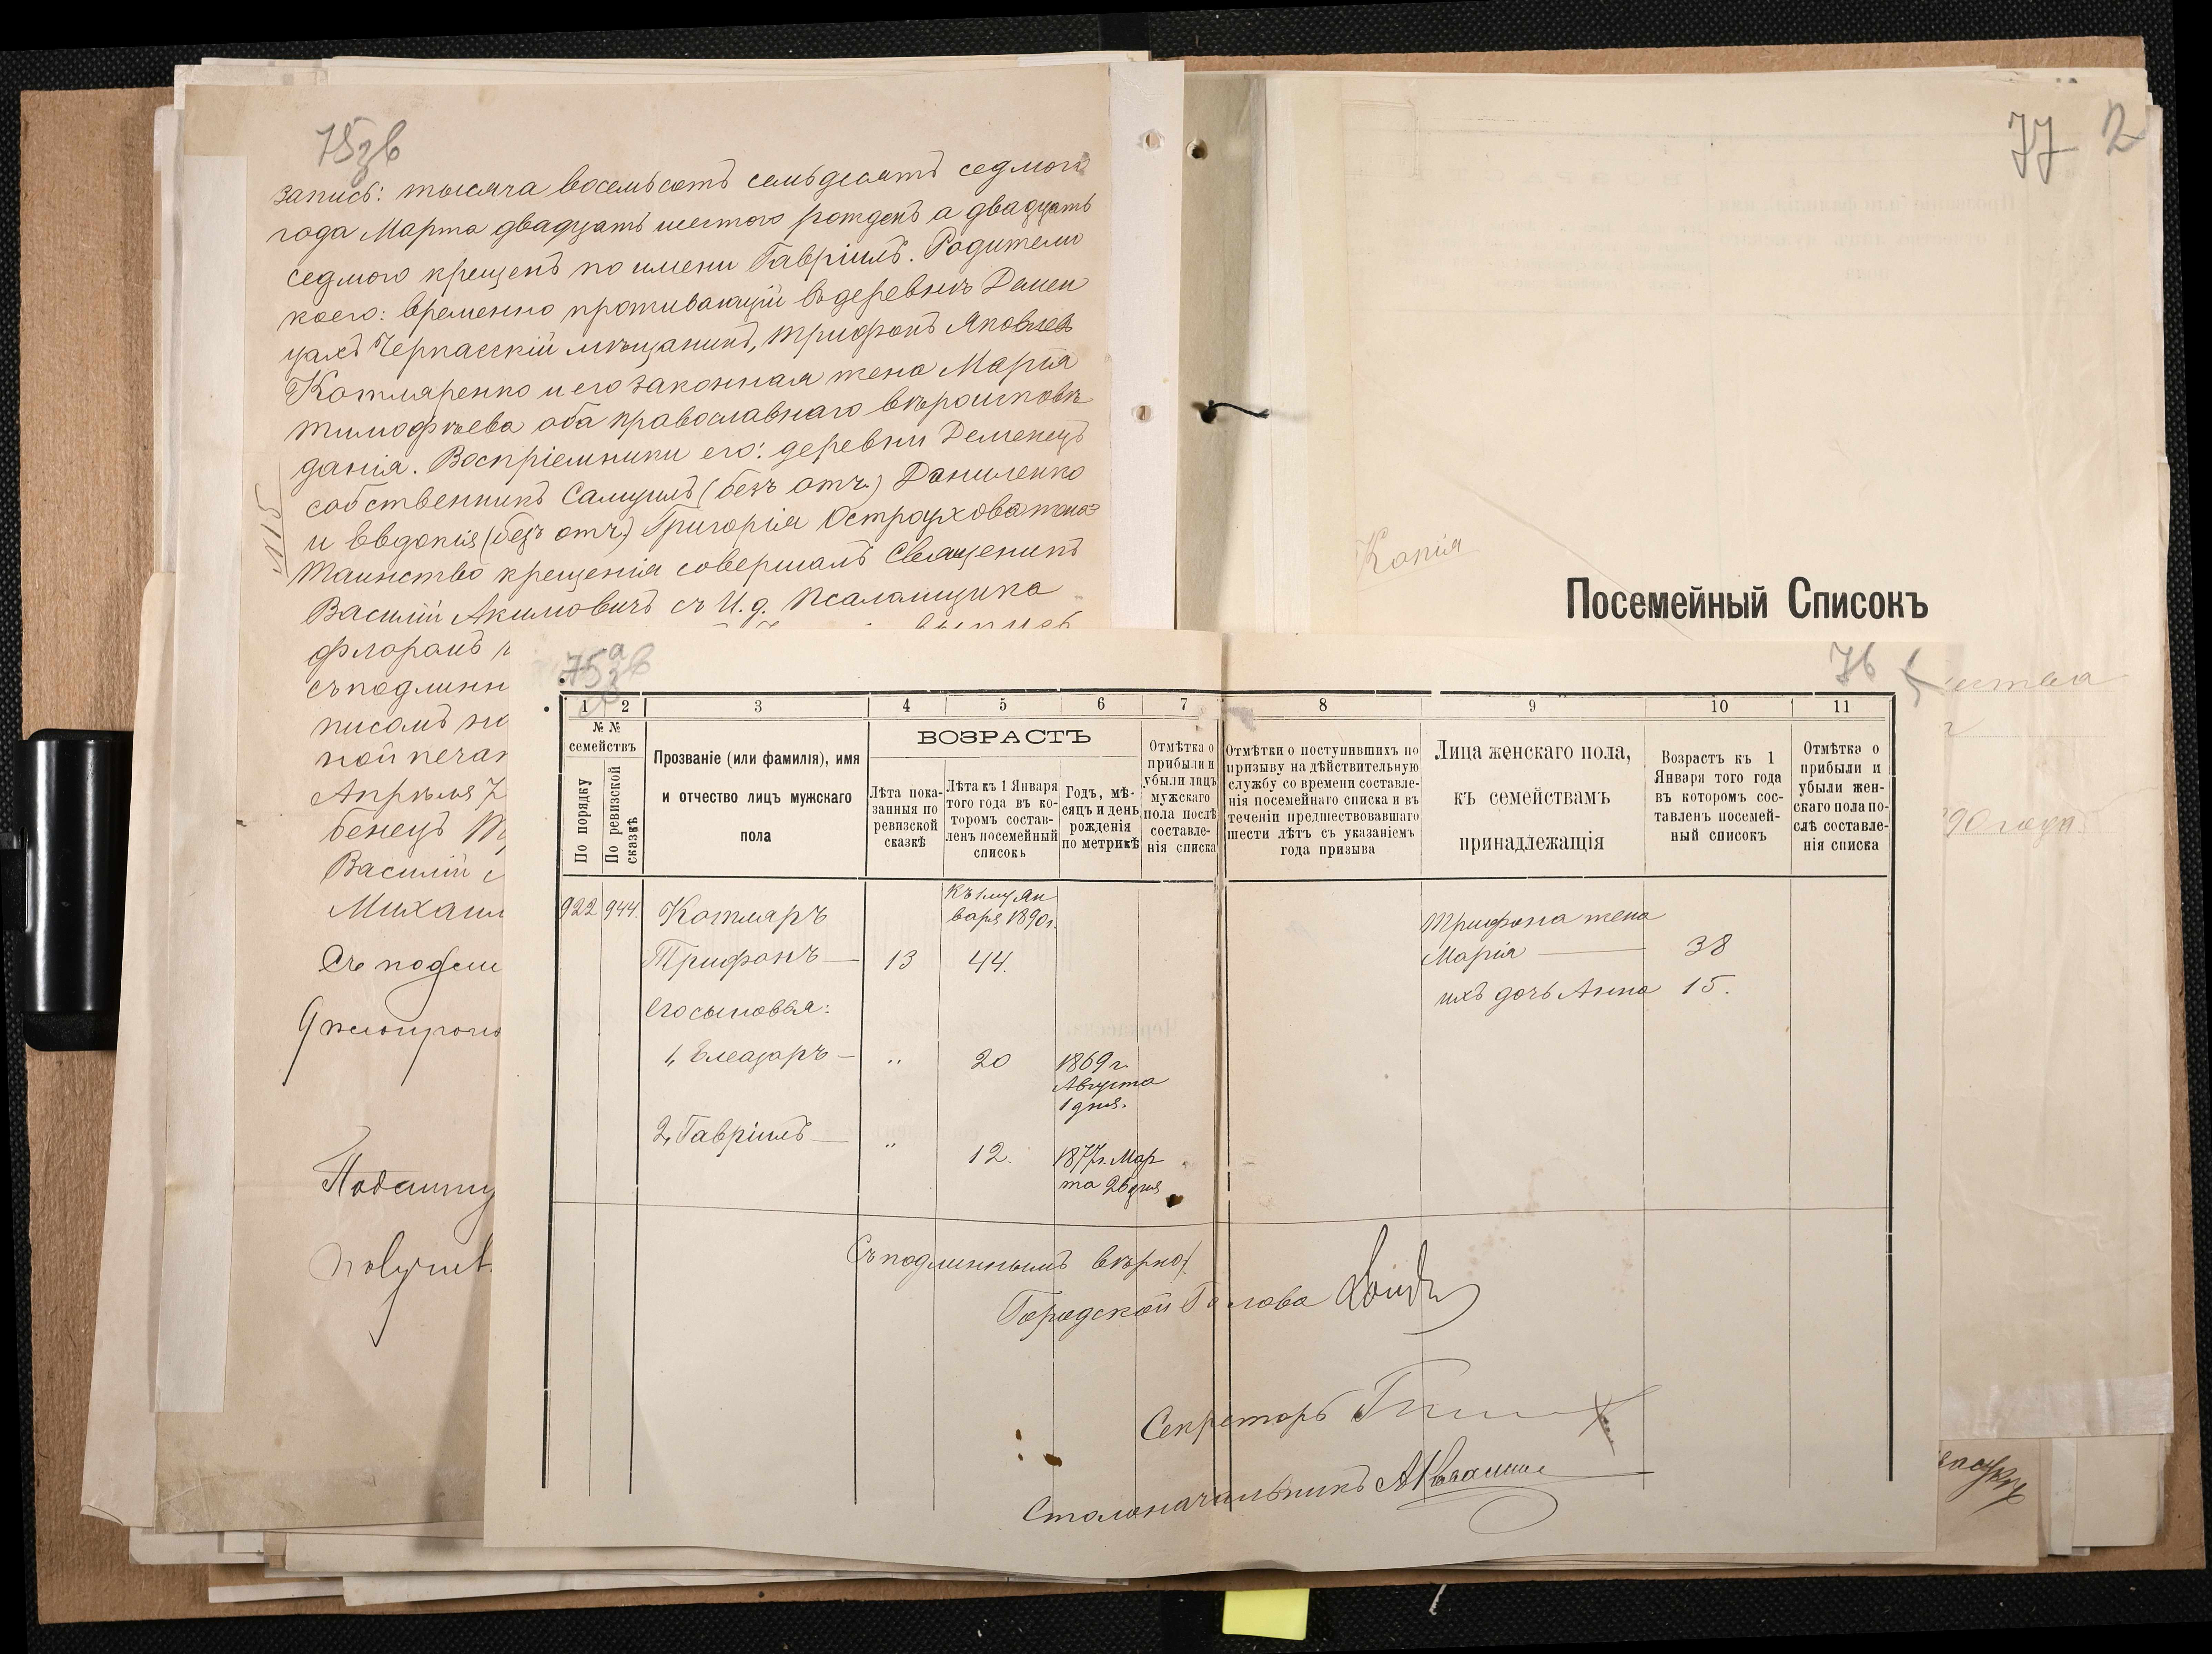 75зв
запись: тысяча восемьсотъ семьдесятъ седмого
года Марта двадцать шестого рожденъ а двадцать
седмого крещенъ по имени Гавріилъ. Родители
коего: временно проживающій въ деревнѣ Демен
цахъ Черкасскій мѣщанинъ, Трифонъ Яковлев
Котляренко и его законная жена Марія
Тимофѣева оба православнаго вѣроисповѣ
данія. Воспріемники его: деревни Деменецъ
собственникъ Самуилъ (безъ отч.) Даниленко
и Евдокія (безъ отч.) Григорія Остроухова жена
№ 15
Таинство крещенія совершалъ Священикъ
Василій Акимовичъ съ И. д. Псаломщика
флоромъ
съ подлинн
писомъ
ной печат
Апрѣля 7
бенецъ
Василій
Михаил
Съ подли
77 2
Копія
Посемейный Списокъ
90 года
75а зв
76
1 2 3 4 5 6 7 8 9 10 11
№ № семействъ
По порядку
По ревизской сказкѣ
Прозваніе (или фамилія), имя
и отчество лицъ мужскаго
пола
ВОЗРАСТЪ
Лѣта пока-
занныя по
ревизской
сказкѣ
Лѣта къ 1 Января
того года въ ко-
торомъ состав-
ленъ посемейный
списокъ
Годъ, мѣ-
сяцъ и день
рожденія
по метрикѣ
Отмѣтка о
прибыли и
убыли лицъ
мужскаго
пола послѣ
составле-
нія списка
Отмѣтки о поступившихъ по
призыву на дѣйствительную
службу со времени составле-
нія посемейнаго списка и въ
теченіи предшествовавшаго
шести лѣтъ съ указаніемъ
года призыва
Лица женскаго пола,
къ семействамъ
принадлежащія
Возрастъ къ 1
Января того года
въ которомъ сос-
тавленъ посемей-
ный списокъ
Отмѣтка о
прибыли и
убыли жен-
скаго пола по-
слѣ составле-
нія списка
Къ 1му Ян
варя 1890 г.
922 944. Котляръ
Трифонъ — 13 44.
Его сыновья:
1, Елеазаръ — „ 20 1869 г.
Августа
1 дня.
2, Гавріилъ — „ 12. 1877 г. Мар
та 26 дня
Трифона жена
Марія — 38
ихъ дочь Анна 15.
Съ подлиннымъ вѣрно:
Городской Голова
Секретарь
Столоначальникъ